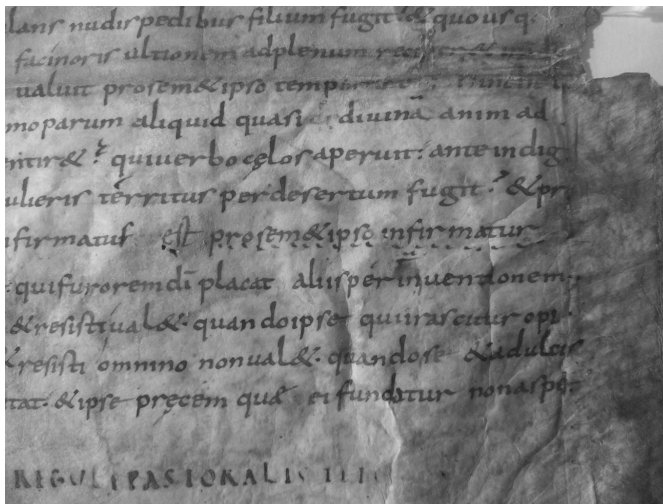 lans nudis pedibus filium fugit & quo usq.
facinoris ultionem adplenum
ualuit pro sem&ipso
mo parum aliquid quasi divinā anim ad
ritir& quiuerbo cęlos aperuit. ante indig
ulieris territus per desertum fugit & pr
nfirmatus est pro sem&ipso infirmatur
qui furorem dī placat aliis per inuentionem
& resisti ual&. quando ipse qui irascitur opi
& resisti omnino non ual&. quando se & adulcis
tat. & ipse pręcem quę ei funditur non aspe
REGULI PASTORALIS III